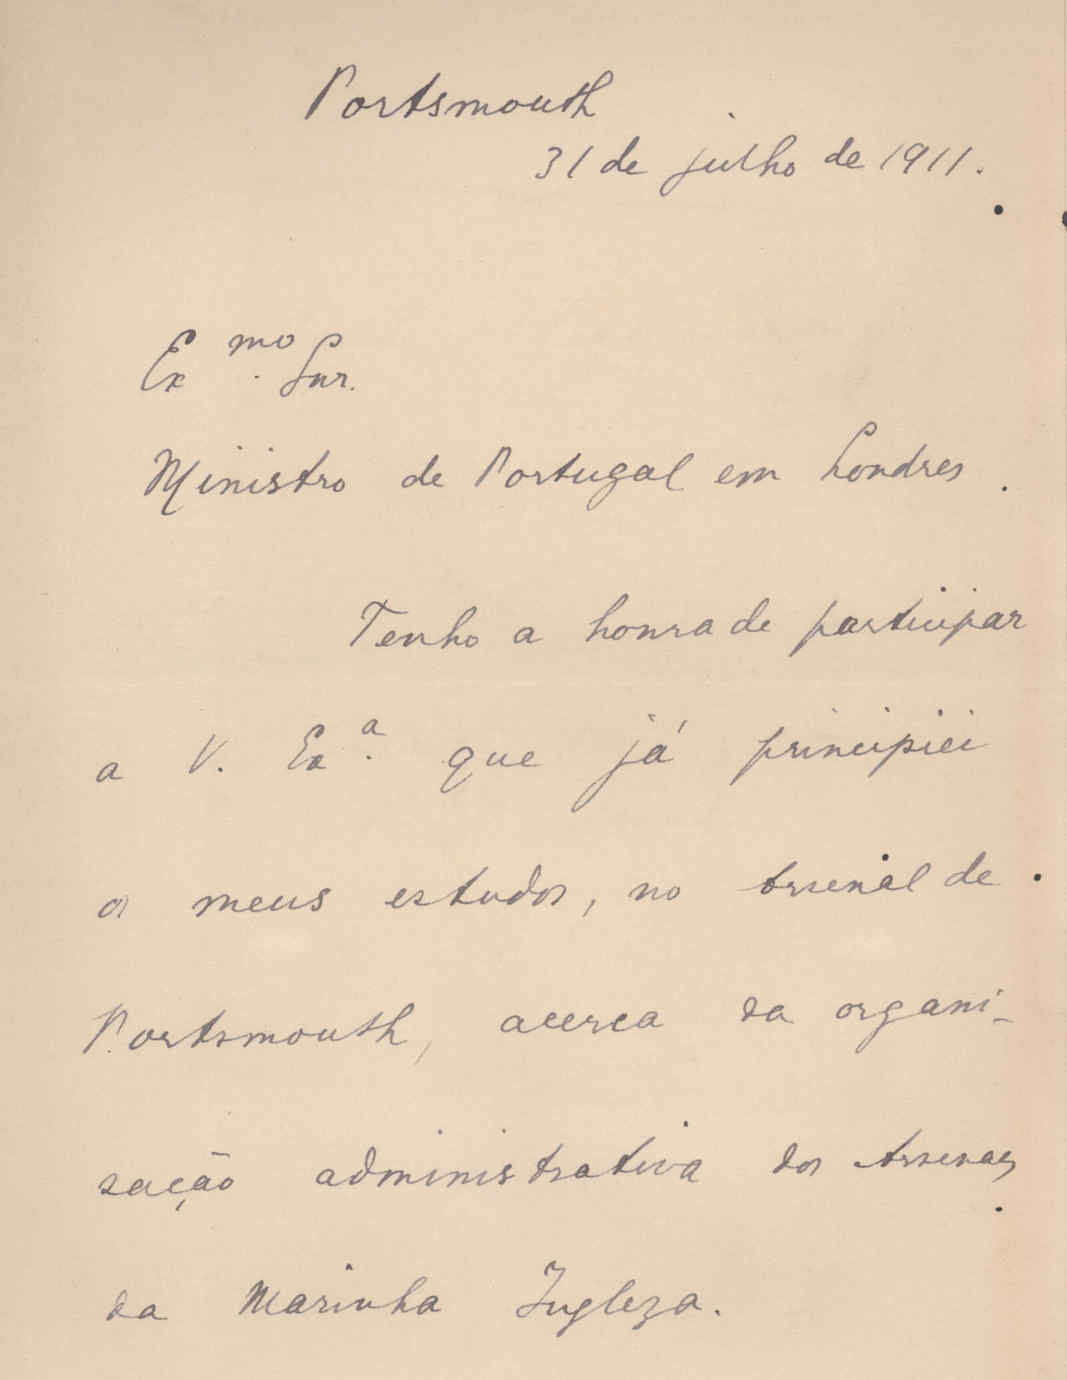 Portsmouth
31 de julho de 1911.
Ex.mo Snr.
Ministro de Portugal em Londres.
Tenho a honra de participar
a V. Ex.a que já principiei
os meus estudos, no Arsenal de
Portsmouth, acerca da organi-
sação administrativa dos Arsenaes
da Marinha Ingleza.